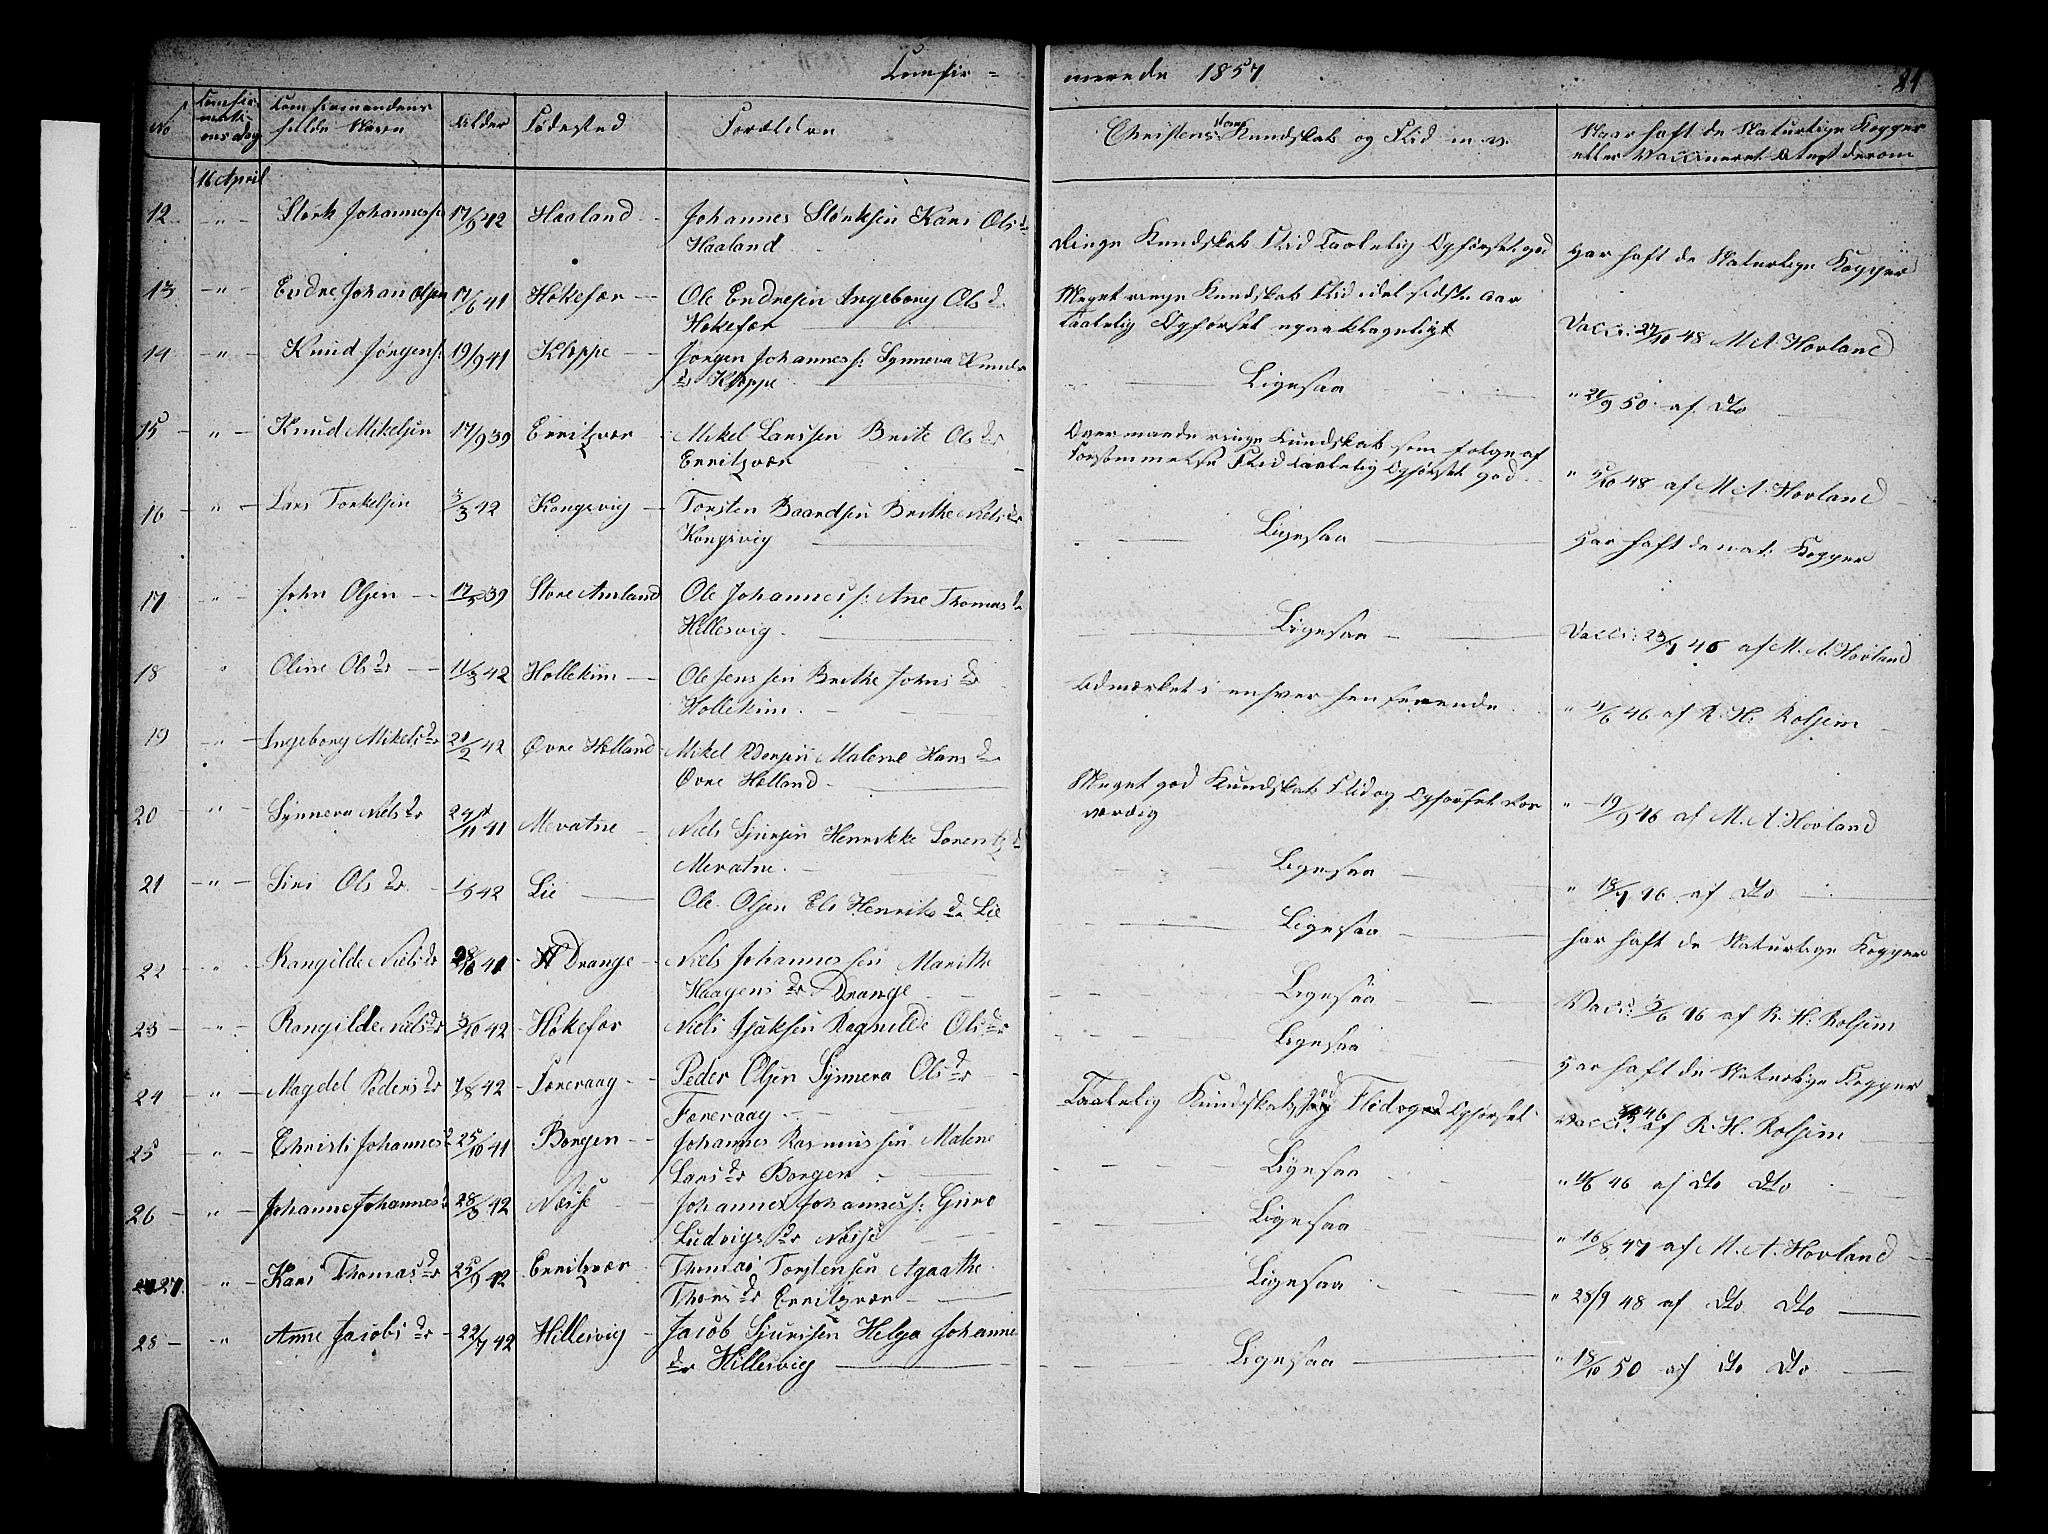 Comfir=
merede 1857 84
No
Comfirmations Dag
Comfirmandens fulde Navn
Alder
Fødested
Forældre
Christendoms Kundskab og Flid m. v.
Naar haft de Naturlige Kopper eller Vaccineret Attest derom
16 April
12 " Størk Johanness 17/9 42 Haaland Johannes Størksen Kari Ols dr
Haaland
Ringe Kundskab Flid Taalelig Opførsel god
Har haft de Naturlige Kopper
13 " Endre Johan Olsen 17/6 41 Høkefær Ole Endresen Ingeborg Ols d.
Høkefær
Meget ringe Kundskab Flid i det sidste Aar
taalelig Opførsel upaaklageligt
Vacci: 27/10 48 M A Hovland
14 " Knud Jørgens: 19/9 41 Kleppe Jørgen Johanness: Synneva Knuds
dr Kleppe
Ligesaa
" 21/9 50 af Dto
15 " Knud Mikelsen 17/9 39 Ennitzvær Mikel Larssen Brite Ols dr
Ennitzvær
Overmaade ringe Kundskab som følge af
forsømmelse Flid taalelig Opførsel god
" /10 48 af M A. Hovland
16 " Lars Torkelsen 3/3 42 Kongsvig Torsten Baardsen Brithe Niels dr
Kongsvig
Ligesaa
Har haft de nat: Kopper
17 " John Olsen 17/5 39 Store Amland Ole Johanness: Ane Thomas dr
Hillesvig
Ligesaa
Vacci: 23/9 46 af M. A. Hovland
18 " Oline Ols dr 11/3 42 Hollekim Ole Jenssen Brithe Johns dr
Hollekim
Udmærket i enhver henseende
" 4/6 46 af R. H. Rolsem
19 " Ingeborg Mikels dr 21/2 42 Øvre Holland Mikel Pedersen Malene Hans dr
Øvre Holland
Meget god Kundskab Flid og Opførsel Roe
værdig
" 19/9 46 af M. A. Hovland
20 " Synneva Niels dr 24/11 41 Mevatne Niels Sjursen Henrikke Lorentz d
Mevatne
Ligesaa
" 18/9 46 af Dto
21 " Siri Ols dr 1/9 42 Lie Ole Olsen Els Henriks dr Lie
Ligesaa
har haft de Naturlige Kopper
22 " Rangilde Niels dr 28/10 41 Drange Niels Johannessen Marithe
Haagens dr Drange
Ligesaa
Vacc: 3/6 46 af R. H. Rolsem
23 " Rangilde Niels dr 3/10 42 Høkefær Niels Isaksen Ragnilde Ols dr
Ligesaa
Har haft de Naturlige Kopper
24 " Magdel Peders dr 7/8 42 Færeraag Peder Olsen Synneva Ols dr
Færeraag
Taalelig Kundskab god Flid og Opførsel
Vacc: 46 af R. H. Rolsem
25 " Christi Johannes d 25/10 41 Borgen Johannes Rasmussen Malene
Lars dr Borgen
Ligesaa
" 46 af Dto Dto
26 " Johanne Johannes d 28/3 42 Nesse Johannes Johanness: Guro
Ludvigs dr Nesse
Ligesaa
" 16/8 47 af M. A. Hovland
27 " Kari Thomas dr 25/9 42 Ennitzvær Thomas Torstensen Agaathe
Thors dr Ennitzvær
Ligesaa
" 28/9 48 af Dto Dto
28 " Anne Jacobs dr 22/7 42 Hillesvig Jacob Sjurssen Helga Johanne
dr Hillesvig
Ligesaa
" 18/10 50 af Dto Dto